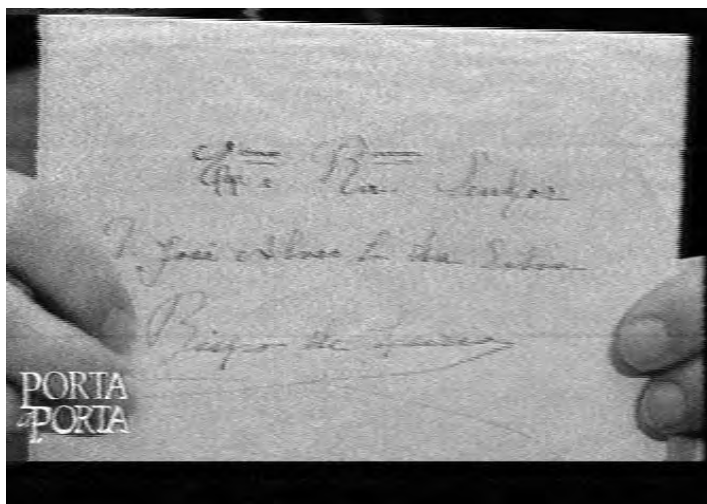 Rev.mo Senhor
D. José Alves C. da Silva
Bispo de Leiria
PORTA
a PORTA